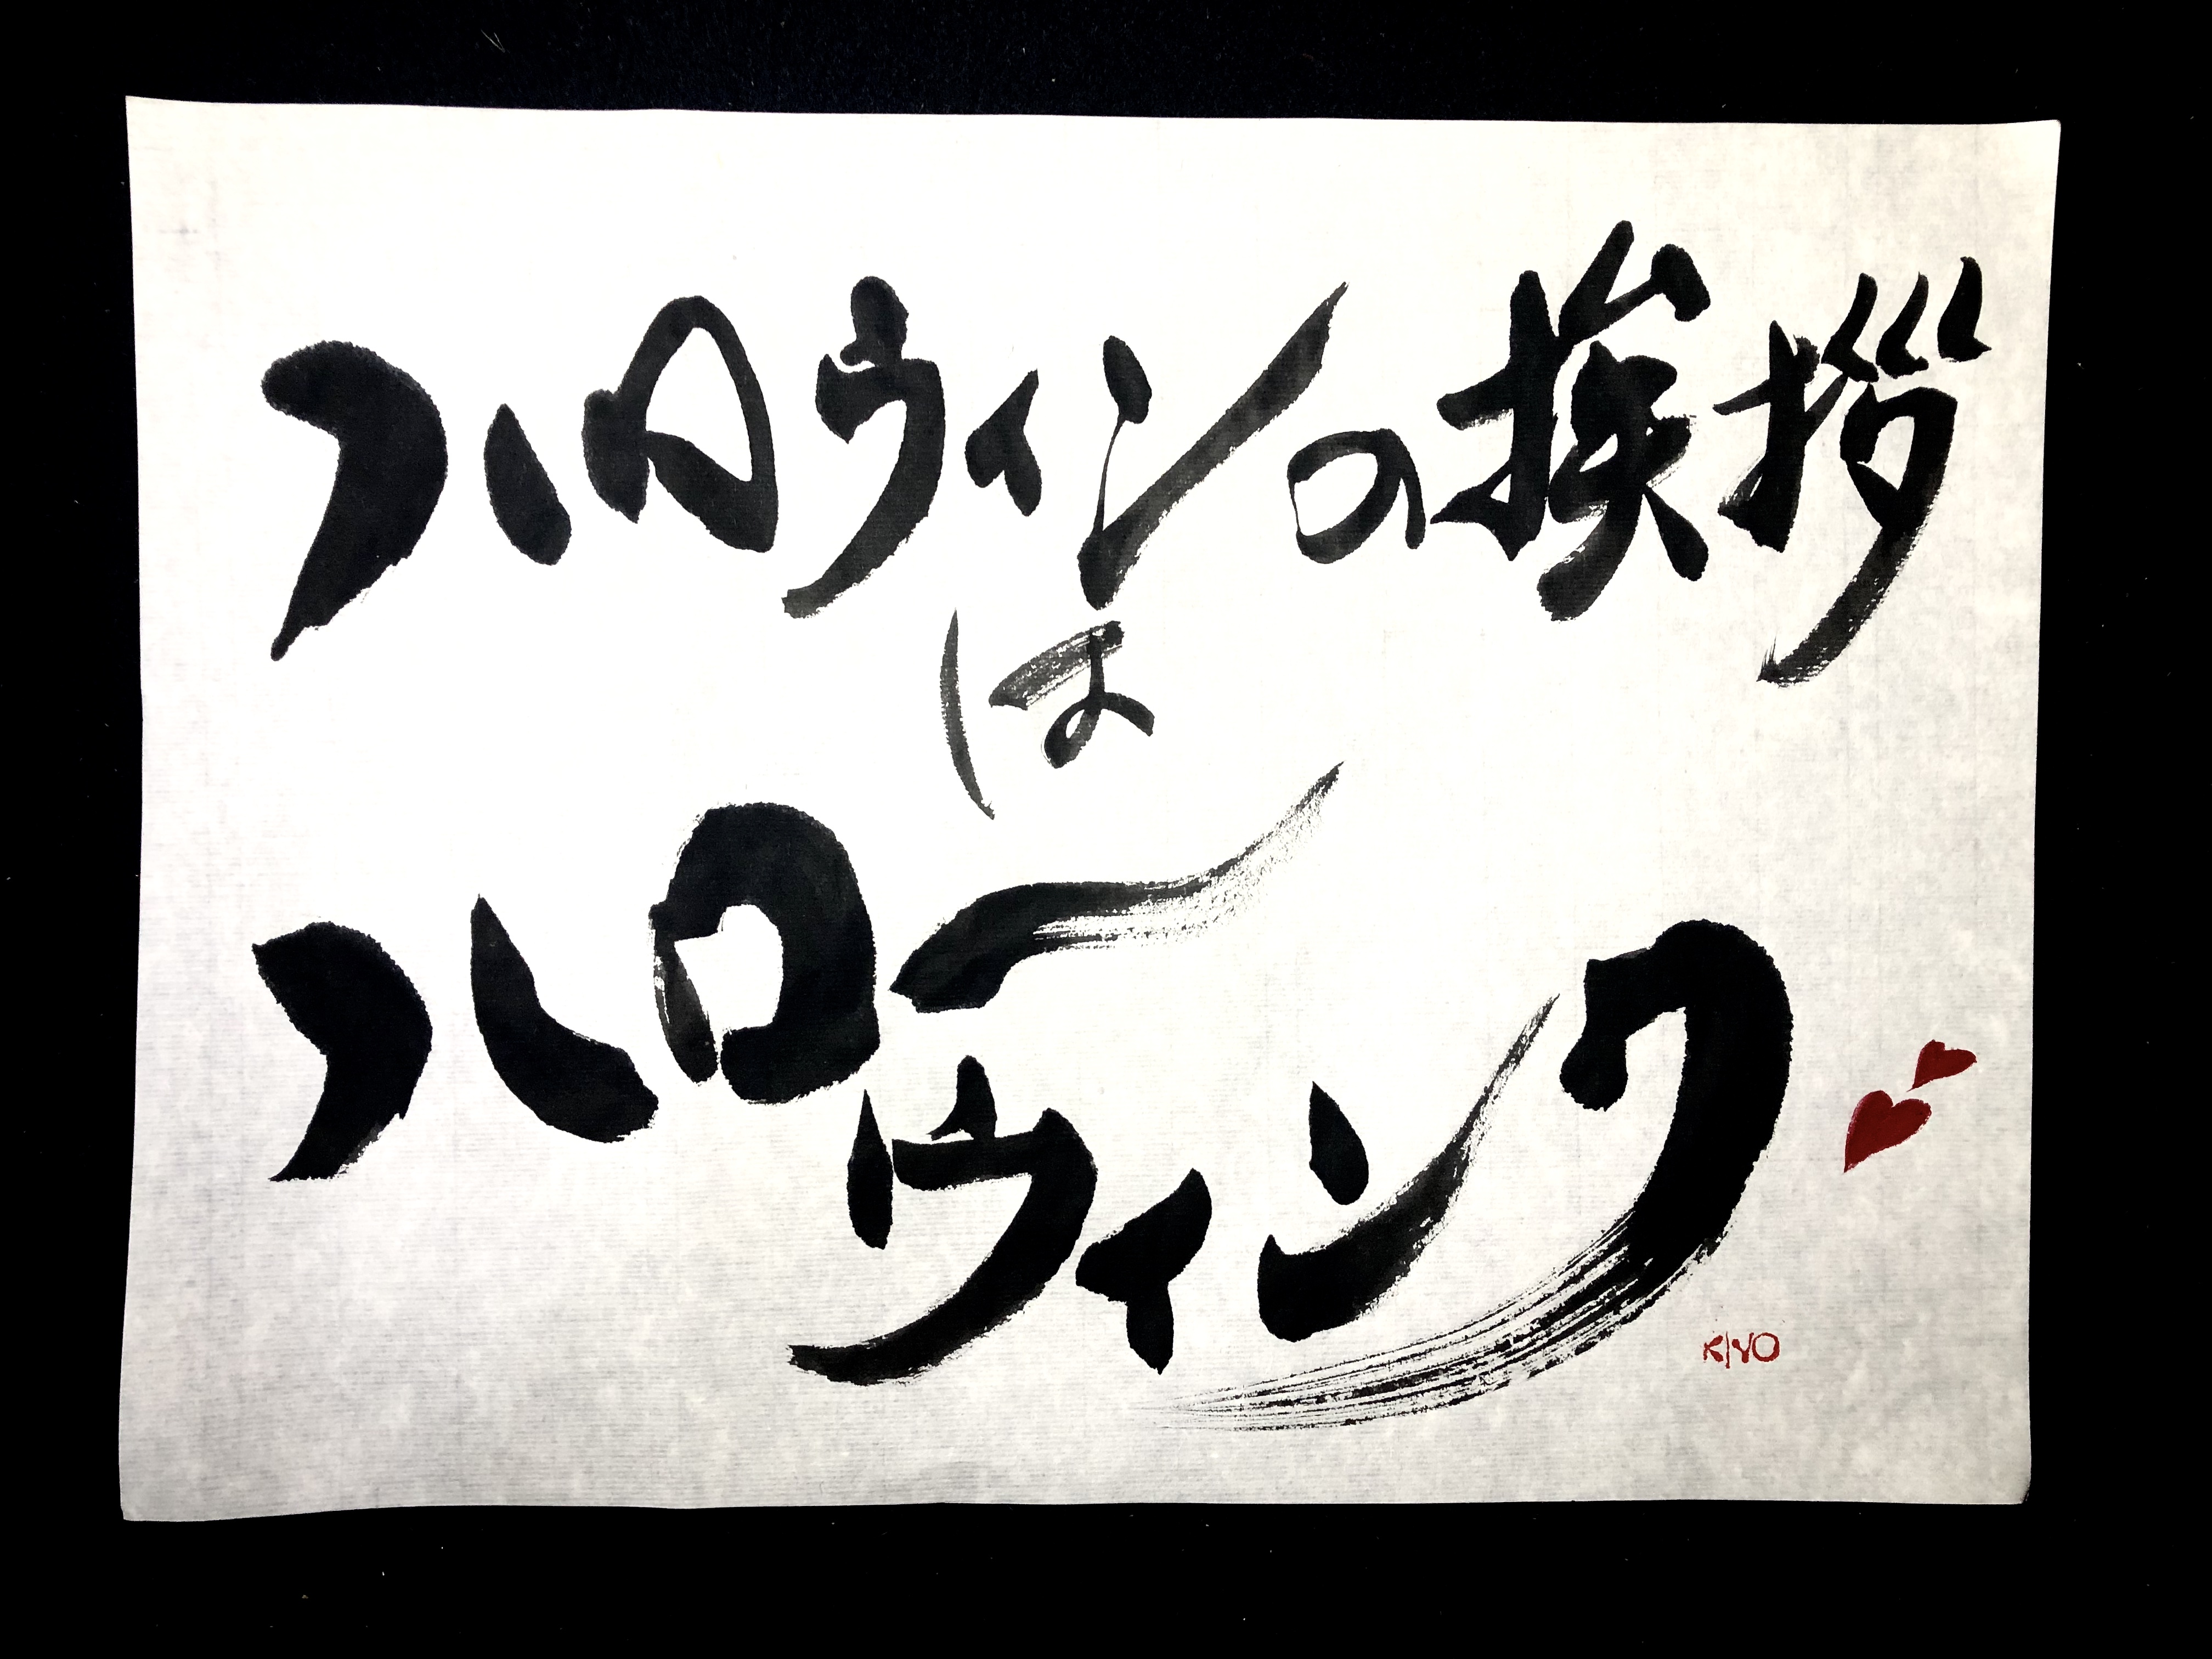 ハロウィンの挨拶
は
ハロー
ウィンク
KIYO